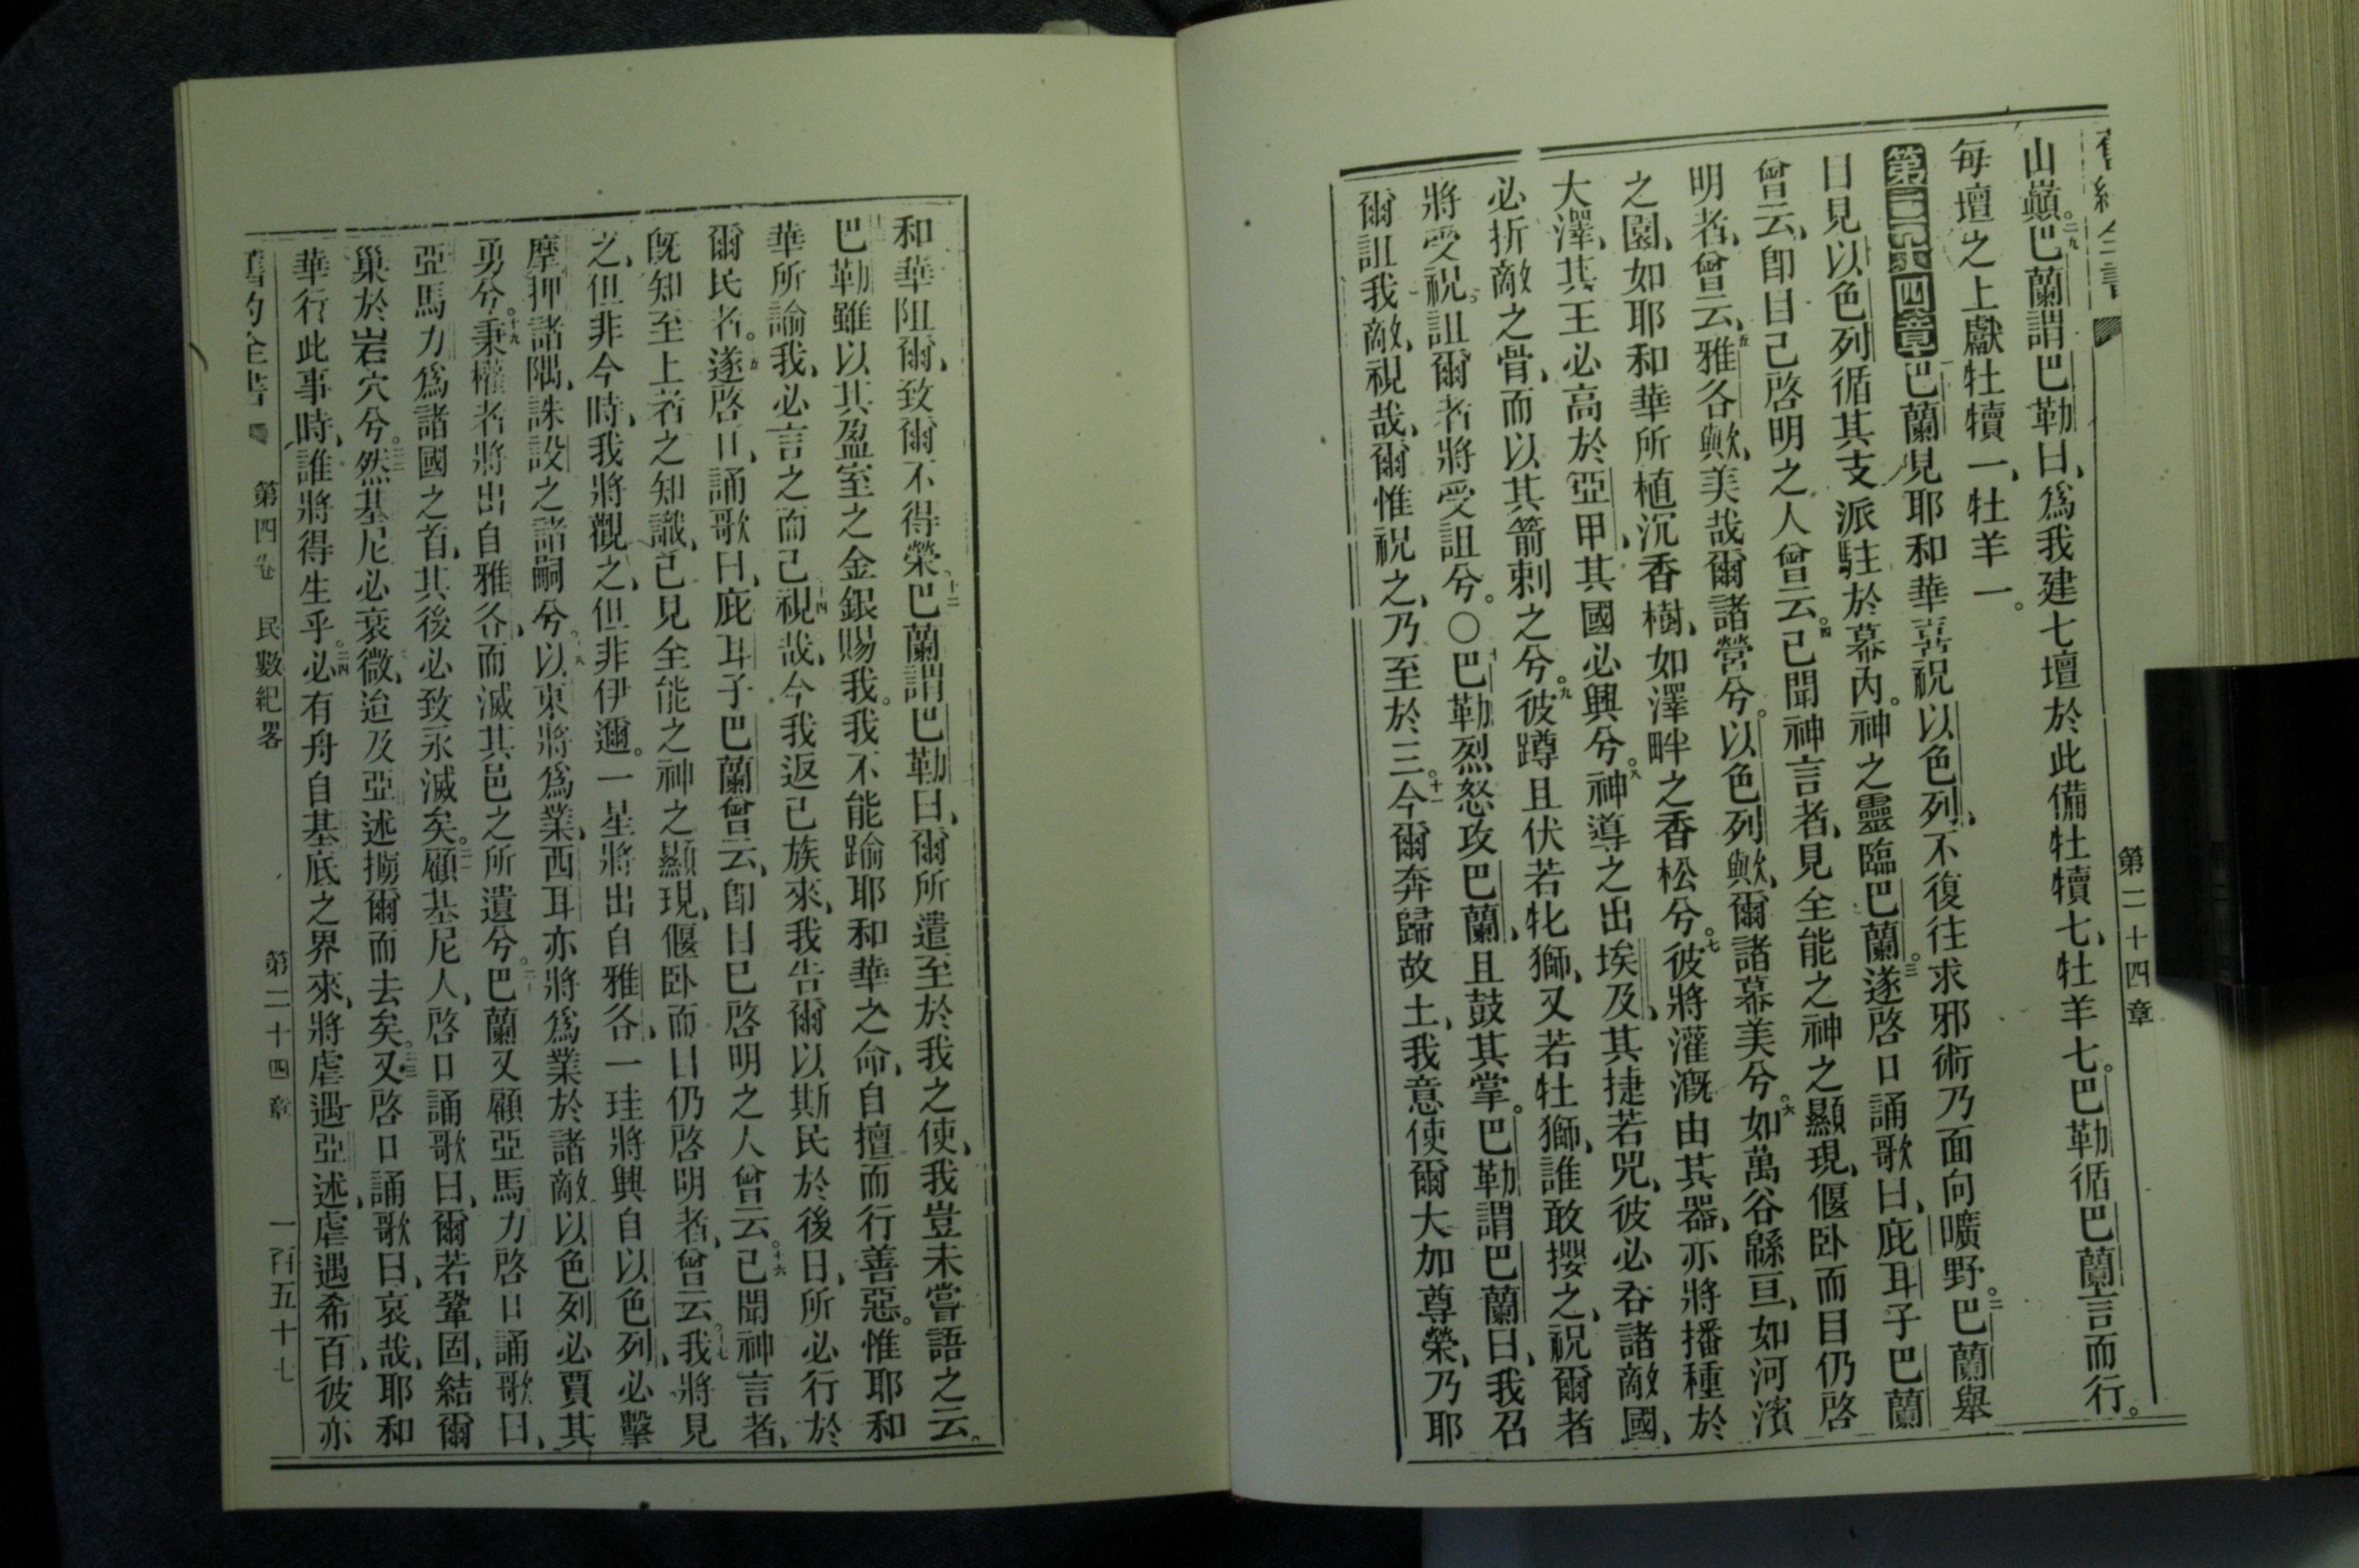 第二十四章
山巔。二九巴蘭謂巴勒曰、爲我建七壇於此備牡犢七、牡羊七。巴勒循巴蘭言而行。
每壇之上獻牡犢一、牡羊一。
第二十四章 巴蘭見耶和華喜祝以色列、不復往求邪術乃面向曠野。二巴蘭舉
目見以色列循其支派駐於幕內。神之靈臨巴蘭。三遂啓口誦歌曰、庇耳子巴蘭
曾云、卽目已啓明之人曾云。四已聞神言者、見全能之神之顯現、偃卧而目仍啓
明者、曾云、五雅各歟、美哉爾諸營兮。以色列歟、爾諸幕美兮。六如萬谷緜亘、如河濱
之園、如耶和華所植沉香樹、如澤畔之香松兮。七彼將灌溉由其器、亦將播種於
大澤、其王必高於亞甲、其國必興兮。八神導之出埃及、其捷若兕、彼必吞諸敵國、
必折敵之骨、而以其箭刺之兮。九彼蹲且伏若牝獅、又若牡獅、誰敢攖之、祝爾者
將受祝。詛爾者將受詛兮。〇十巴勒烈怒攻巴蘭、且鼓其掌。巴勒謂巴蘭曰、我召
爾詛我敵、視哉、爾惟祝之、乃至於三。十一今爾奔歸故土、我意使爾大加尊榮、乃耶
和華阻爾、致爾不得榮。十二巴蘭謂巴勒曰、爾所遣至於我之使、我豈未嘗語之云。
巴勒雖以其盈室之金銀賜我。我不能踰耶和華之命、自擅而行善惡。惟耶和
華所諭我、必言之而已。十四視哉、今我返已族來、我告爾以斯民於後日、所必行於
爾民者。十五遂啓口、誦歌曰、庇耳子巴蘭曾云、卽目已啓明之人曾云。十六已聞神言者、
旣知至上者之知識、已見全能之神之顯現、偃卧而目仍啓明者、曾云。十七我將見
之、但非今時、我將觀之、但非伊邇。一星將出自雅各、一珪將興自以色列、必擊
摩押諸隅、誅設之諸嗣兮。十八以東將爲業、西耳亦將爲業於諸敵以色列必賈其
勇兮。十九秉權者將出自雅各、而滅其邑之所遺兮。二十巴蘭又顧亞馬力啓口誦歌曰、
亞馬力爲諸國之首、其後必致永滅矣。二一顧基尼人、啓口誦歌曰、爾若鞏固、結爾
巢於岩穴兮。二二然基尼必衰微、迨及亞述擄爾而去矣。二三又啓口誦歌曰、哀哉、耶和
華行此事時、誰將得生乎。二四必有舟自基底之界來、將虐遇亞述、虐遇希百、彼亦
舊約全書 第四卷 民數紀畧 第二十四章 一百五十七